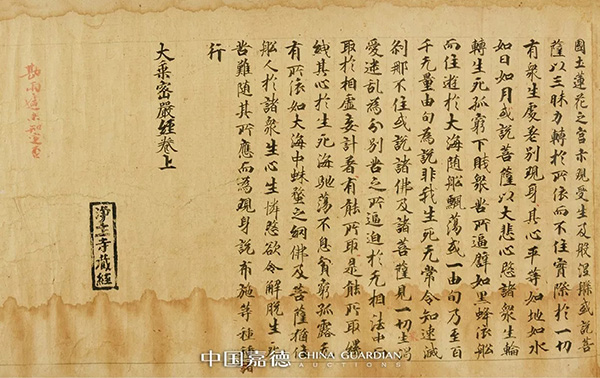 國土蓮花之宮亦現受生及般涅槃或說菩
薩以三昧力轉於所依而不住實際於一切
有衆生處差別現身其心平等如地如水
如日如月或說菩薩以大悲心愍諸衆生輪
轉生死孤窮下賎衆苦所逼譬如黒蜂依船
而住遊於大海隨船飄蕩或一由旬乃至百
千无量由旬為說非我生死无常令知速滅
刹那不住或說諸佛及諸菩薩見一切生
愛迷乱為分別苦之所逼迫於无相法中
取於相虛妄計著有能所取是能所取纏
其心於生死海馳蕩不息貧窮孤露无
有所依如大海中蛛蝥之網佛及菩薩猶
船人於諸衆生心生怜愍欲令解脫生死
苦難隨其所應而為現身說布施等種
行
大乘密嚴經卷上
淨土寺藏經
勘兩遍
中国嘉德 CHINA GUARDIAN
AUCTIONS